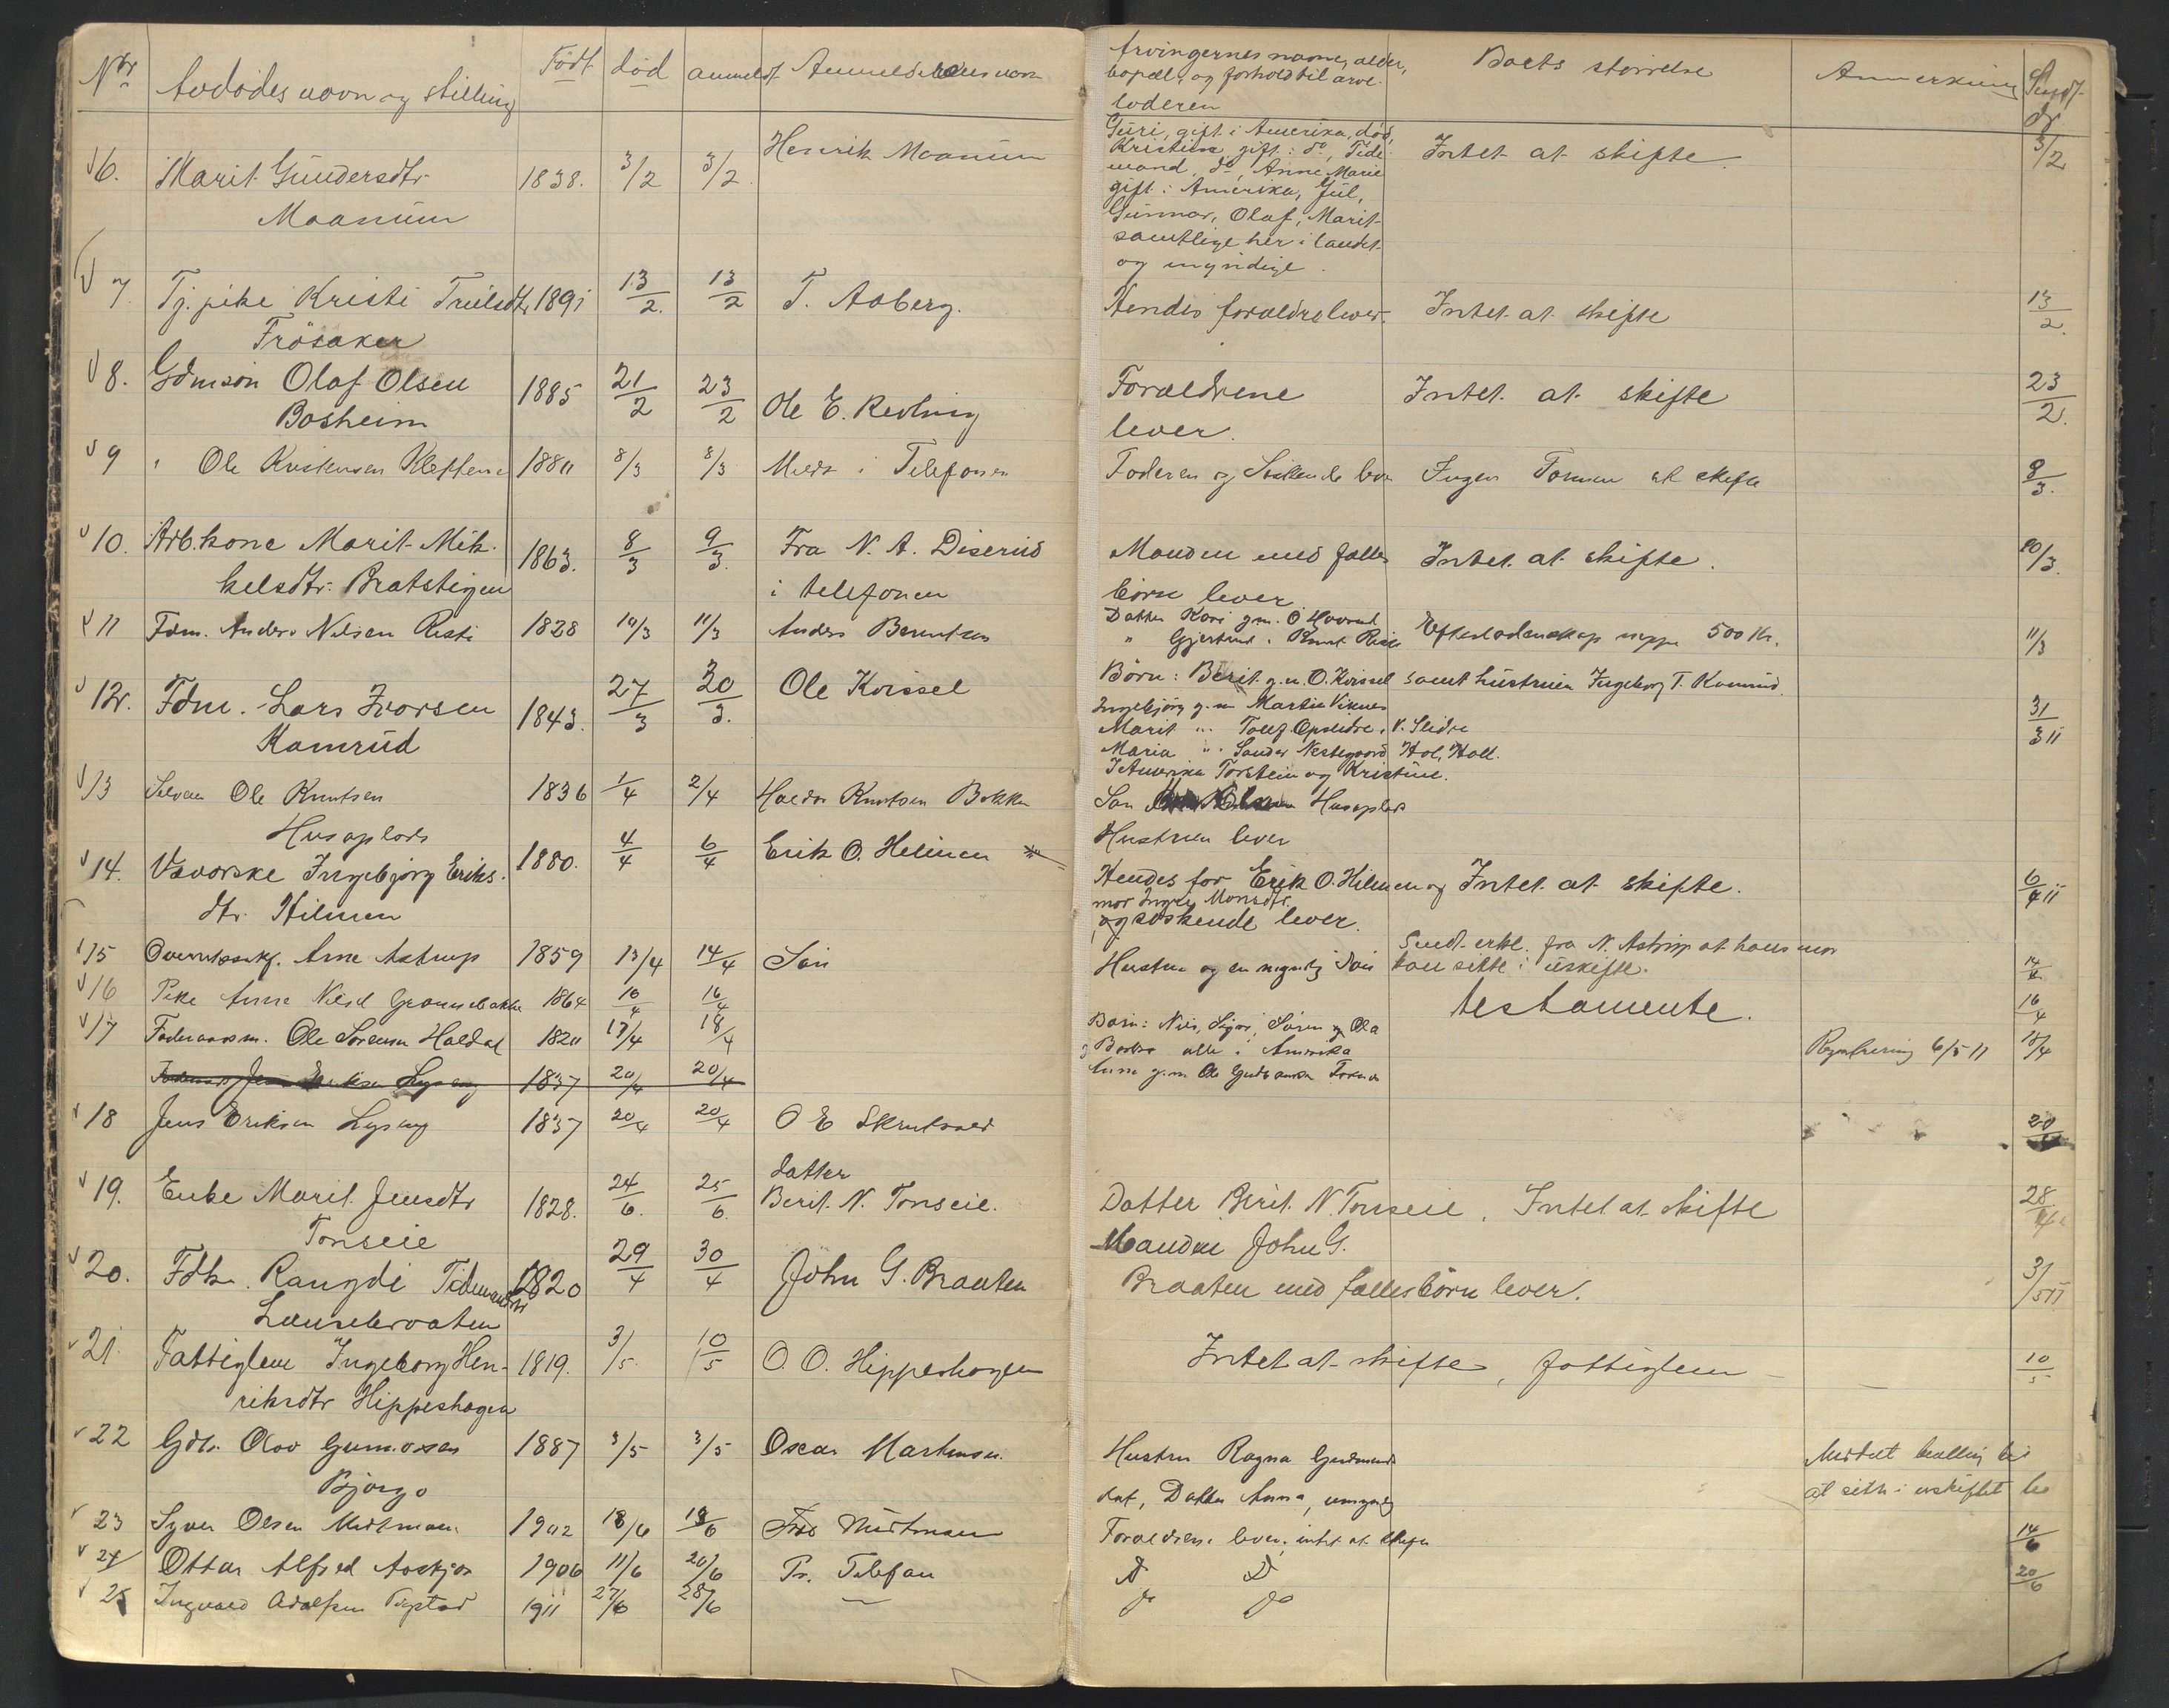 Nr Avdødes navn og stilling Født død anmeldt Anmelderens navn
6. Marit Gundersdtr. 1838. 3/2 3/2 Henrik Moanum
Moanum
7. Tj.pike Kristi Trulsdtr. 1891 13/2. 13/2 T. Aaberg.
Frøsaker
8. Gdmsøn Olaf Olsen 1885 21/2 23/2 Ole E. Redning
Bosheim
9 " Ole Kristensen Kleffene 1880 8/3 8/3 Meldt i Telefonen
10. Arb.kone Marit Mik- 1863. 8/3 9/3. Fra N. A. Diserud
kelsdtr. Bratstigen i telefonen
11 Fdm. Anders Nilsen Risti 1828 10/3 11/3 Anders Berntsen
12. Fdm. Lars Ivorsen 1843. 27/3 30/3. Ole Koissel
Kamrud
13 Selveier Ole Knutsen 1836 1/4 2/4 Haldor Knutsen Bakken
Husaplads
14. Vavorske Ingebjørg Eriks- 1880. 4/4 6/4 Erik O. Hilmen
dtr. Hilmen
15 Overretssakf. Arne Astrup 1859 13/4 14/4 Søn
16 Pike Anne Nilsd Grønnebakke 1864 16/4 16/4
17 Føderaadsm. Ole Sørensen Haldal 1820 17/4 18/4
Jens Eriksen Lyseng 1837 20/4 20/4
18 Jens Eriksen Lyseng 1837 20/4 20/4 O E Skrutvold
19. Enke Marit Jensdtr 1828. 24/6. 25/6. datter
Tonseie Berit N. Tonseie.
20. Fdk. Rangdi Tidemandsdtr 1820 29/4 30/4 John G. Braaten
Lunsbraaten
21. Fattiglem Ingeborg Hen- 1819. 3/5. 10/5 O. O. Hippeshagen
riksdtr Hippeshagen
22 Gdbr. Olav Gunnarsen 1887 3/5 3/5 Oscar Martinsen
Bjørgo
23 Syver Olsen Midtmoen 1902 18/6 19/6 Fra Midtmoen
24 Ottar Alfred Aaskjær 1906 11/6 20/6 Pr. Telefon
25 Ingvald Adolfsen Tigstad 1911 27/6 28/6 —
Arvingernes navne, alder,
bopæl, og forhold til arve-
laderen Boets størrelse Anmerkning
Guri, gift i Amerika, død,
Kristine gift i do, Tide- Intet at skifte 3/2
mand, do, Anne Marie
gift i Amerika, Jul,
Gunnar, Olaf, Marit
samtlige her i landet
og myndige.
Hendes forældre lever. Intet at skifte 13/2.
Forældrene Intet at skifte 23/2.
lever.
Faderen og Søskende lever Ingen Formue at skifte 8/3.
Manden med fælles Intet at skifte. 10/3.
børn lever
Datter Kari g.m. O Hovrud
" Gjertrud i Knut Risti Efterladenskap neppe 500 Kr. 11/3
Børn: Berit g.m. O. Koissel samt hustruen Ingeborg T. Kamrud.
Ingebjørg g.m Martin Viknes 31/3 11
Marit " Tollef Opslidre, V. Slidre
Maria " Sander Nestegaard Hol, Hall.
I Amerika Torstein og Kristine.
Søn Husaplads
Hustruen lever
Hendes far Erik O. Hilmen og Intet at skifte. 6/4 11
mor Ingrg Monsdtr.
og søskende lever.
Send. erkl. fra N. Astrup at hans mor
Hustru og en myndig Søn kan sitte i uskifte. 14/4
testamente. 16/4
Børn: Nils, Sigri, Søren og Ola
og Barbro alle i Amerika Registrering 6/5 11 18/4
Anne g.m. Ole Gudbrandsen
20
Datter Berit N. Tonseie. Intet at skifte 28/4
Manden John G.
Braaten med fællesbørn lever. 3/5 11
Intet at skifte, fattiglem — 10/5
Hustru Ragna Gudmunds- Meddelt bevilling til
dat, Datter Anna, umyndig at sitte i uskiftet bo
Forældrene lever, intet at skifte 14/6
do do 20/6
do do